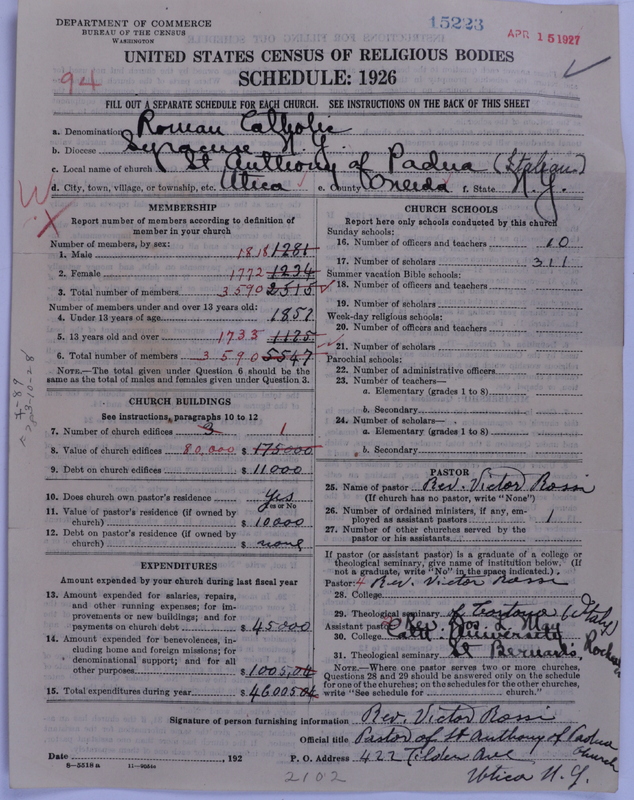 DEPARTMENT OF COMMERCE
BUREAU OF THE CENSUS
WASHINGTON
15223
APR 15 1927
UNITED STATES CENSUS OF RELIGIOUS BODIES
SCHEDULE: 1926
94
FILL OUT A SEPARATE SCHEDULE FOR EACH CHURCH. SEE INSTRUCTIONS ON THE BACK OF THIS SHEET
a. Denomination Roman Catholic
b. Diocese Syracuse N.Y.
c. Local name of church St Anthony of Padua (Italian)
d. City, town, village, or township, etc. Utica e. County Oneida f. State N.Y.
MEMBERSHIP
Report number of members according to definition of member in your church
Number of members, by sex:
1. Male 1818 1281
2. Female 1772 1234
3. Total number of members 3590 2515
Number of members under and over 13 years old:
4. Under 13 years of age 1857
5. 13 years old and over 1733 1125
6. Total number of members 3590 5547
NOTE.—The total given under Question 6 should be the
same as the total of males and females given under Question 3.
CHURCH BUILDINGS
See instructions, paragraphs 10 to 12
7. Number of church edifices 3 1
8. Value of church edifices 80,000 $ 175000
9. Debt on church edifices $ 11000
10. Does church own pastor's residence Yes
Yes or No
11. Value of pastor's residence (if owned by
church) $ 10000
12. Debt on pastor's residence (if owned by
church) $ none
EXPENDITURES
Amount expended by your church during last fiscal year
13. Amount expended for salaries, repairs,
and other running expenses; for im-
provements or new buildings; and for
payments on church debt $ 45000
14. Amount expended for benevolences, in-
cluding home and foreign missions; for
denominational support; and for all
other purposes $ 1005,04
15. Total expenditures during year $ 46005,04
CHURCH SCHOOLS
Report here only schools conducted by this church
Sunday schools:
16. Number of officers and teachers 10
17. Number of scholars 311
Summer vacation Bible schools:
18. Number of officers and teachers
19. Number of scholars
Week-day religious schools:
20. Number of officers and teachers
21. Number of scholars
Parochial schools:
22. Number of administrative officers
23. Number of teachers—
a. Elementary (grades 1 to 8)
b. Secondary
24. Number of scholars—
a. Elementary (grades 1 to 8)
b. Secondary
PASTOR
25. Name of pastor Rev. Victor Rossi
(If church has no pastor, write "None")
26. Number of ordained ministers, if any, em-
ployed as assistant pastors 1
27. Number of other churches served by the
pastor or his assistants
If pastor (or assistant pastor) is a graduate of a college or
theological seminary, give name of institution below. (If
not a graduate, write "No" in the space indicated.)
Pastor: 4 Rev. Victor Rossi
28. College
29. Theological seminary of Tortona (Italy)
Assistant pastor: Rev. Jos. L. May
30. College Cath. University
31. Theological seminary St Bernards,
NOTE.—Where one pastor serves two or more churches,
Questions 28 and 29 should be answered only on the schedule
for one of the churches; on the schedules for the other churches,
write "See schedule for church."
Signature of person furnishing information Rev. Victor Rossi
Official title Pastor of St Anthony of Padua
church
Date , 192 P. O. Address 422 Tilden Ave
8—5518 a
Utica N.Y.
2102